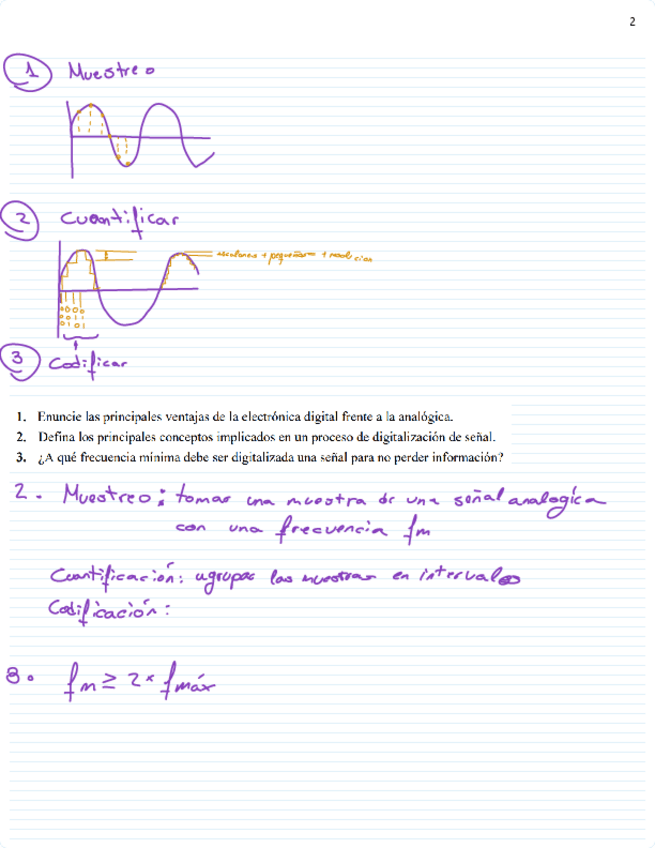 2
1 Muestreo
2 Cuantificar
escalones + pequeños = + resolución
0000
0011
0101
3 Codificar
1. Enuncie las principales ventajas de la electrónica digital frente a la analógica.
2. Defina los principales conceptos implicados en un proceso de digitalización de señal.
3. ¿A qué frecuencia mínima debe ser digitalizada una señal para no perder información?
2. Muestreo: tomar una muestra de una señal analogica
con una frecuencia fm
Cuantificación: agrupar las muestras en intervalos
Codificación:
3. fm ≥ 2 * fmáx